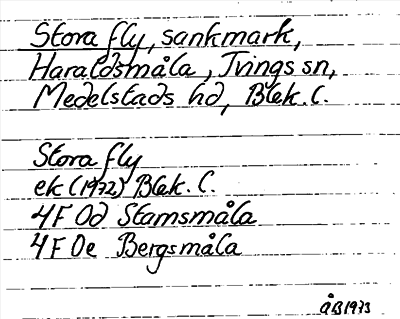 Stora fly, sankmark,
Haraldsmåla, Tvings sn,
Medelstads hd, Blek. l.
Stora fly
ek (1972) Blek. l.
4F 0d Stamsmåla
4F 0e Bergsmåla
ÅB 1973